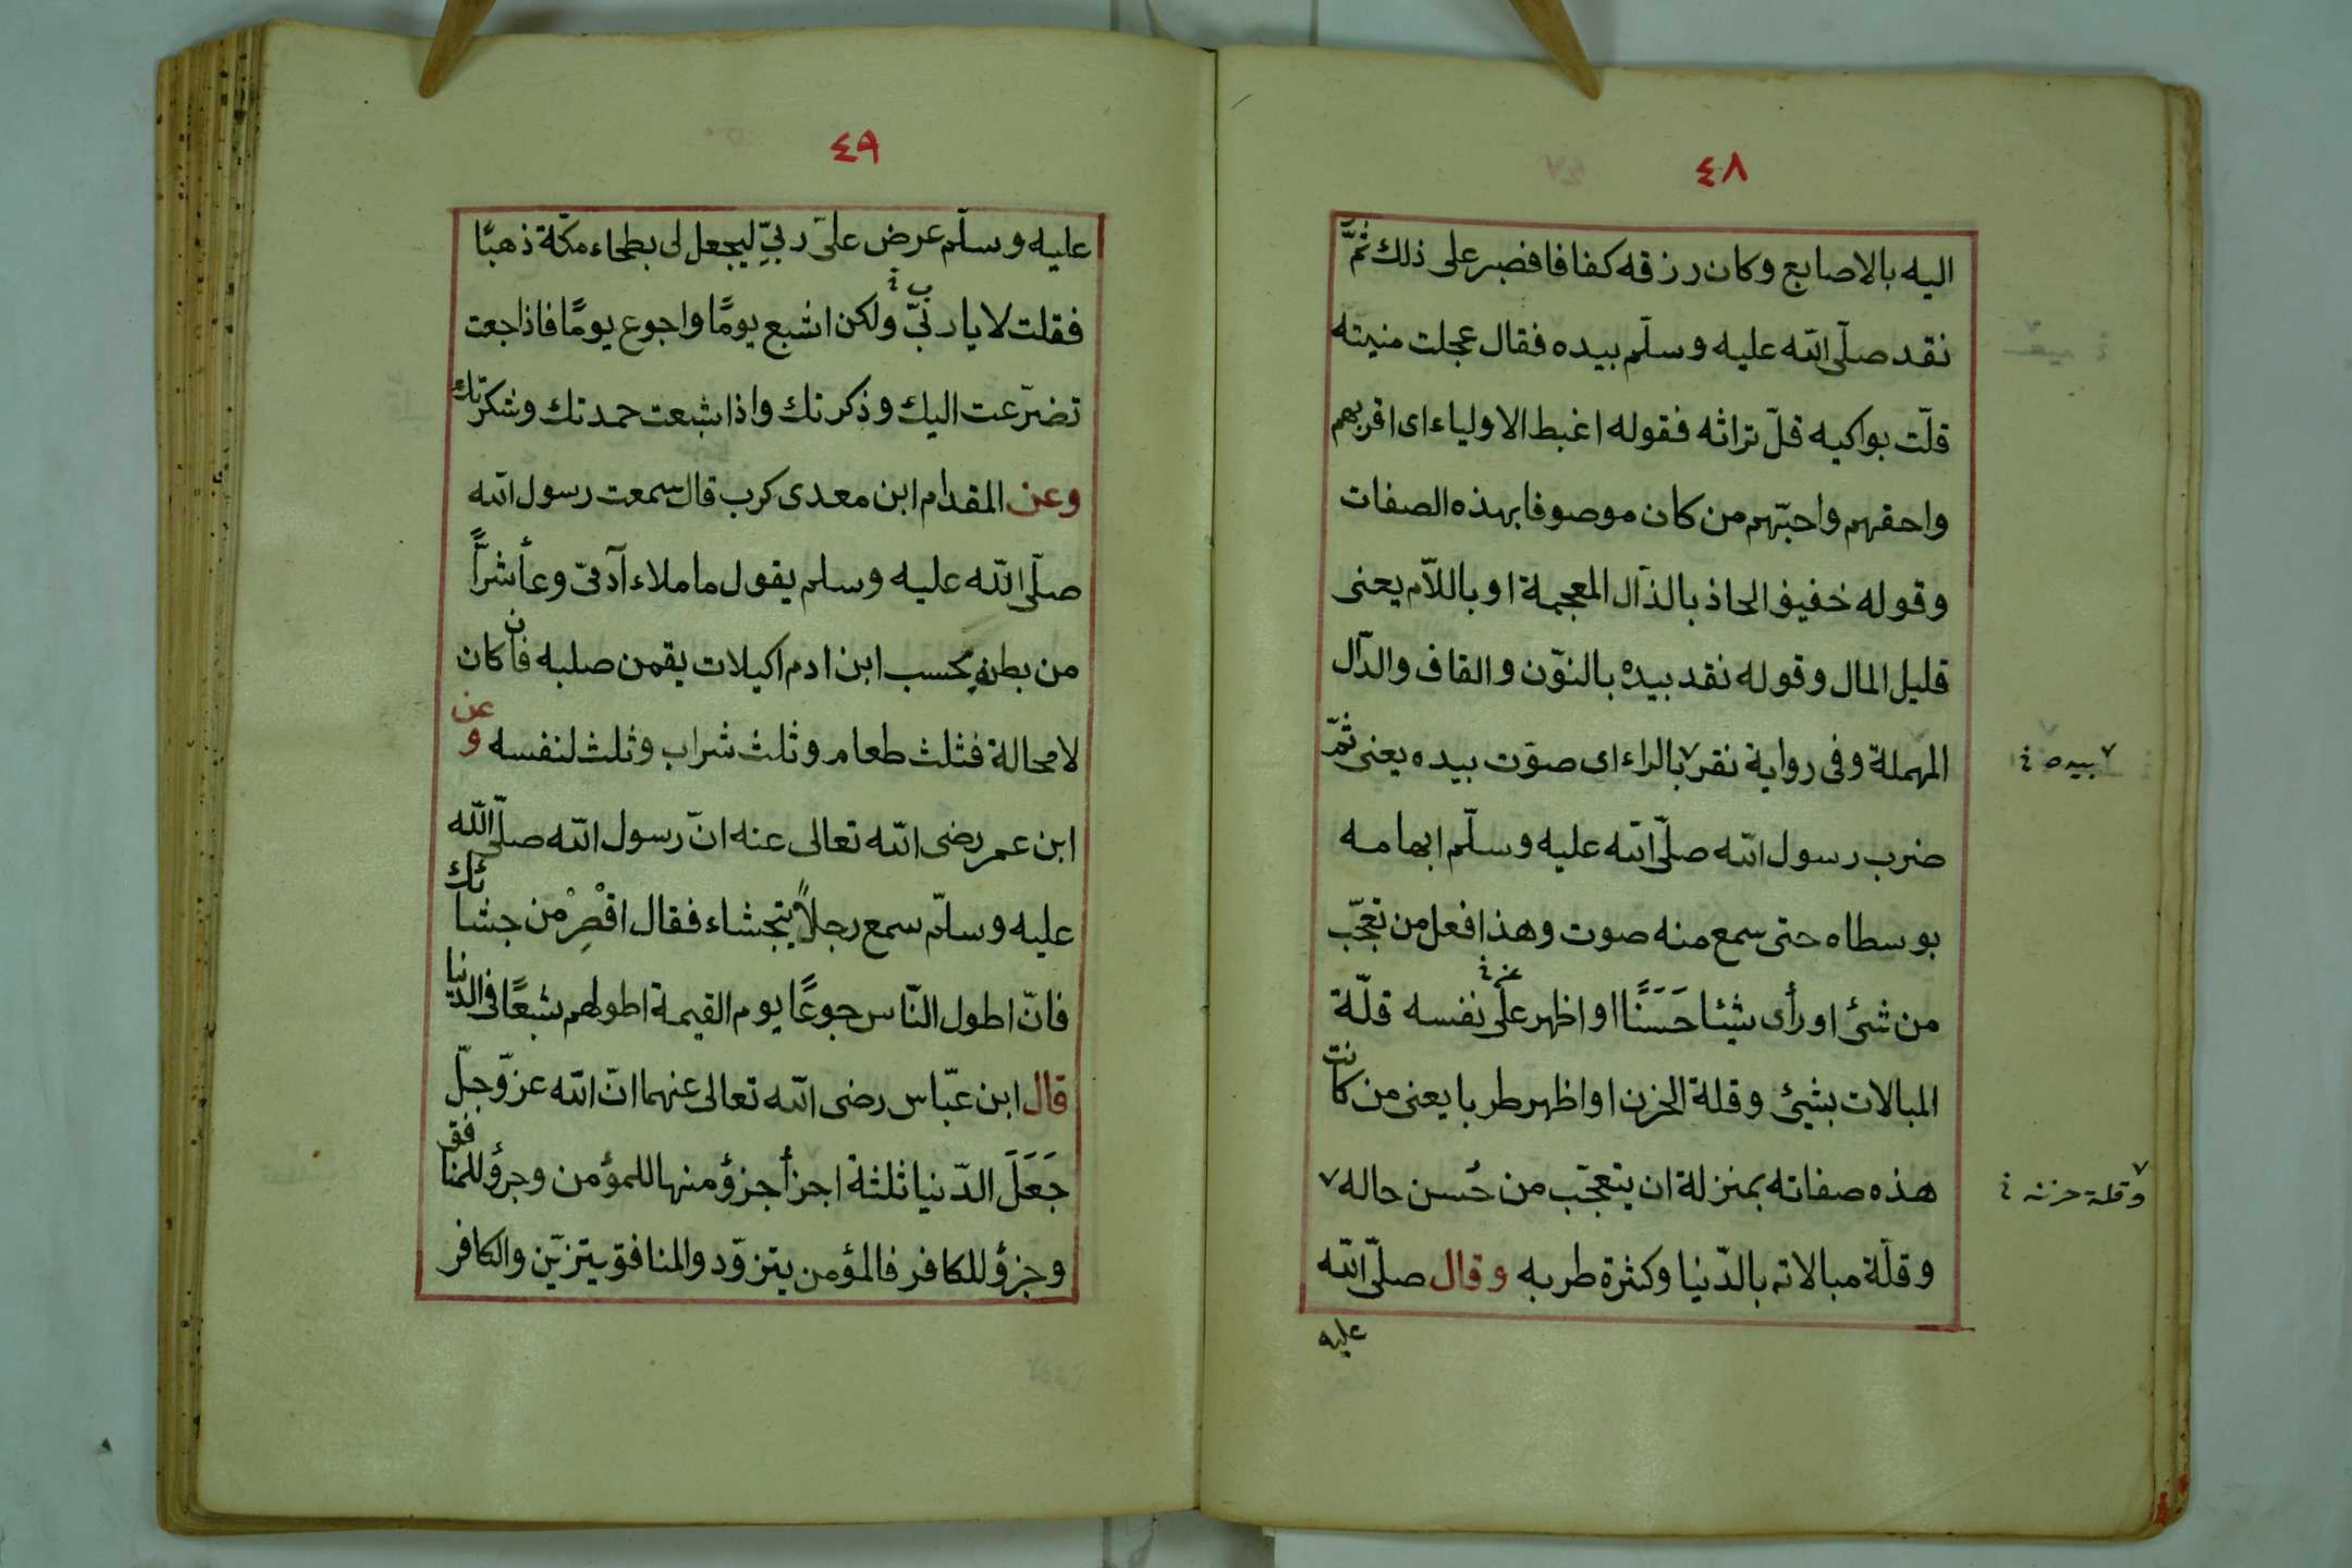 ٤٨
اليه بالاصابع وكان رزقه كفافا فصبر على ذلك ثمّ
نقد صلّى الله عليه وسلّم بيده فقال عجلت منيته
قلّت بواكيه قلّ تراثه فقوله اغبط الاولياء اى اقربهم
واحقهم واحبّهم من كان موصوفا بهذه الصفات
وقوله خفيف الحاذ بالذال المعجمة او باللام يعنى
قليل المال وقوله نقد بيده بالنّون والقاف والدال
المهملة وفى رواية نقر٧ بالراء اى صوّت بيده يعنى ثمّ
٧ بيده
ضرب رسول الله صلّى الله عليه وسلّم ابهامه
بوسطاه حتى سمع منه صوت وهذا فعل من تعجّب
من شئ او رأى شيئا حَسَنًا او اظهر على نفسه قلّة
المبالات بشئ وقلة الحزن او اظهر طربا يعنى من كانت
هذه صفاته بمنزلة ان يتعجّب من حُسن حاله ٧
٧ وقلة حزنه
وقلّة مبالاته بالدّنيا وكثرة طربه وقال صلّى الله
عليه
٤٩
عليه وسلّم عرض علىّ ربىّ ليجعل لى بطحاء مكّة ذهبًا
فقلت لا يا ربّى ولكن اشبع يومًا واجوع يومًا فاذا جعت
تضرّعت اليك وذكرتك واذا شبعت حمدتك وشكرتك
وعن المقدام ابن معدى كرب قال سمعت رسول الله
صلّى الله عليه وسلم يقول ما ملاء آدمىّ وعأ شرّاً
من بطنه بحسب ابن ادم اكيلات يقمن صلبه فان كان
لا محالة فثلث طعام وثلث شراب وثلث لنفسه وعن
ابن عمر رضى الله تعالى عنه انّ رسول الله صلّى الله
عليه وسلّم سمع رجلاً يتجشاء فقال اقْصِرْ من جشائك
فانّ اطول النّاس جوعًا يوم القيمة اطولهم شبعًا فى الدّنيا
قال ابن عبّاس رضى الله تعالى عنهما انّ الله عزّ وجلّ
جَعَلَ الدّنيا ثلثة اجزأ جزؤ منها للمؤمن وجزؤ للمنافق
وجزؤ للكافر فالمؤمن يتزوّد والمنافق يتزيّن والكافر